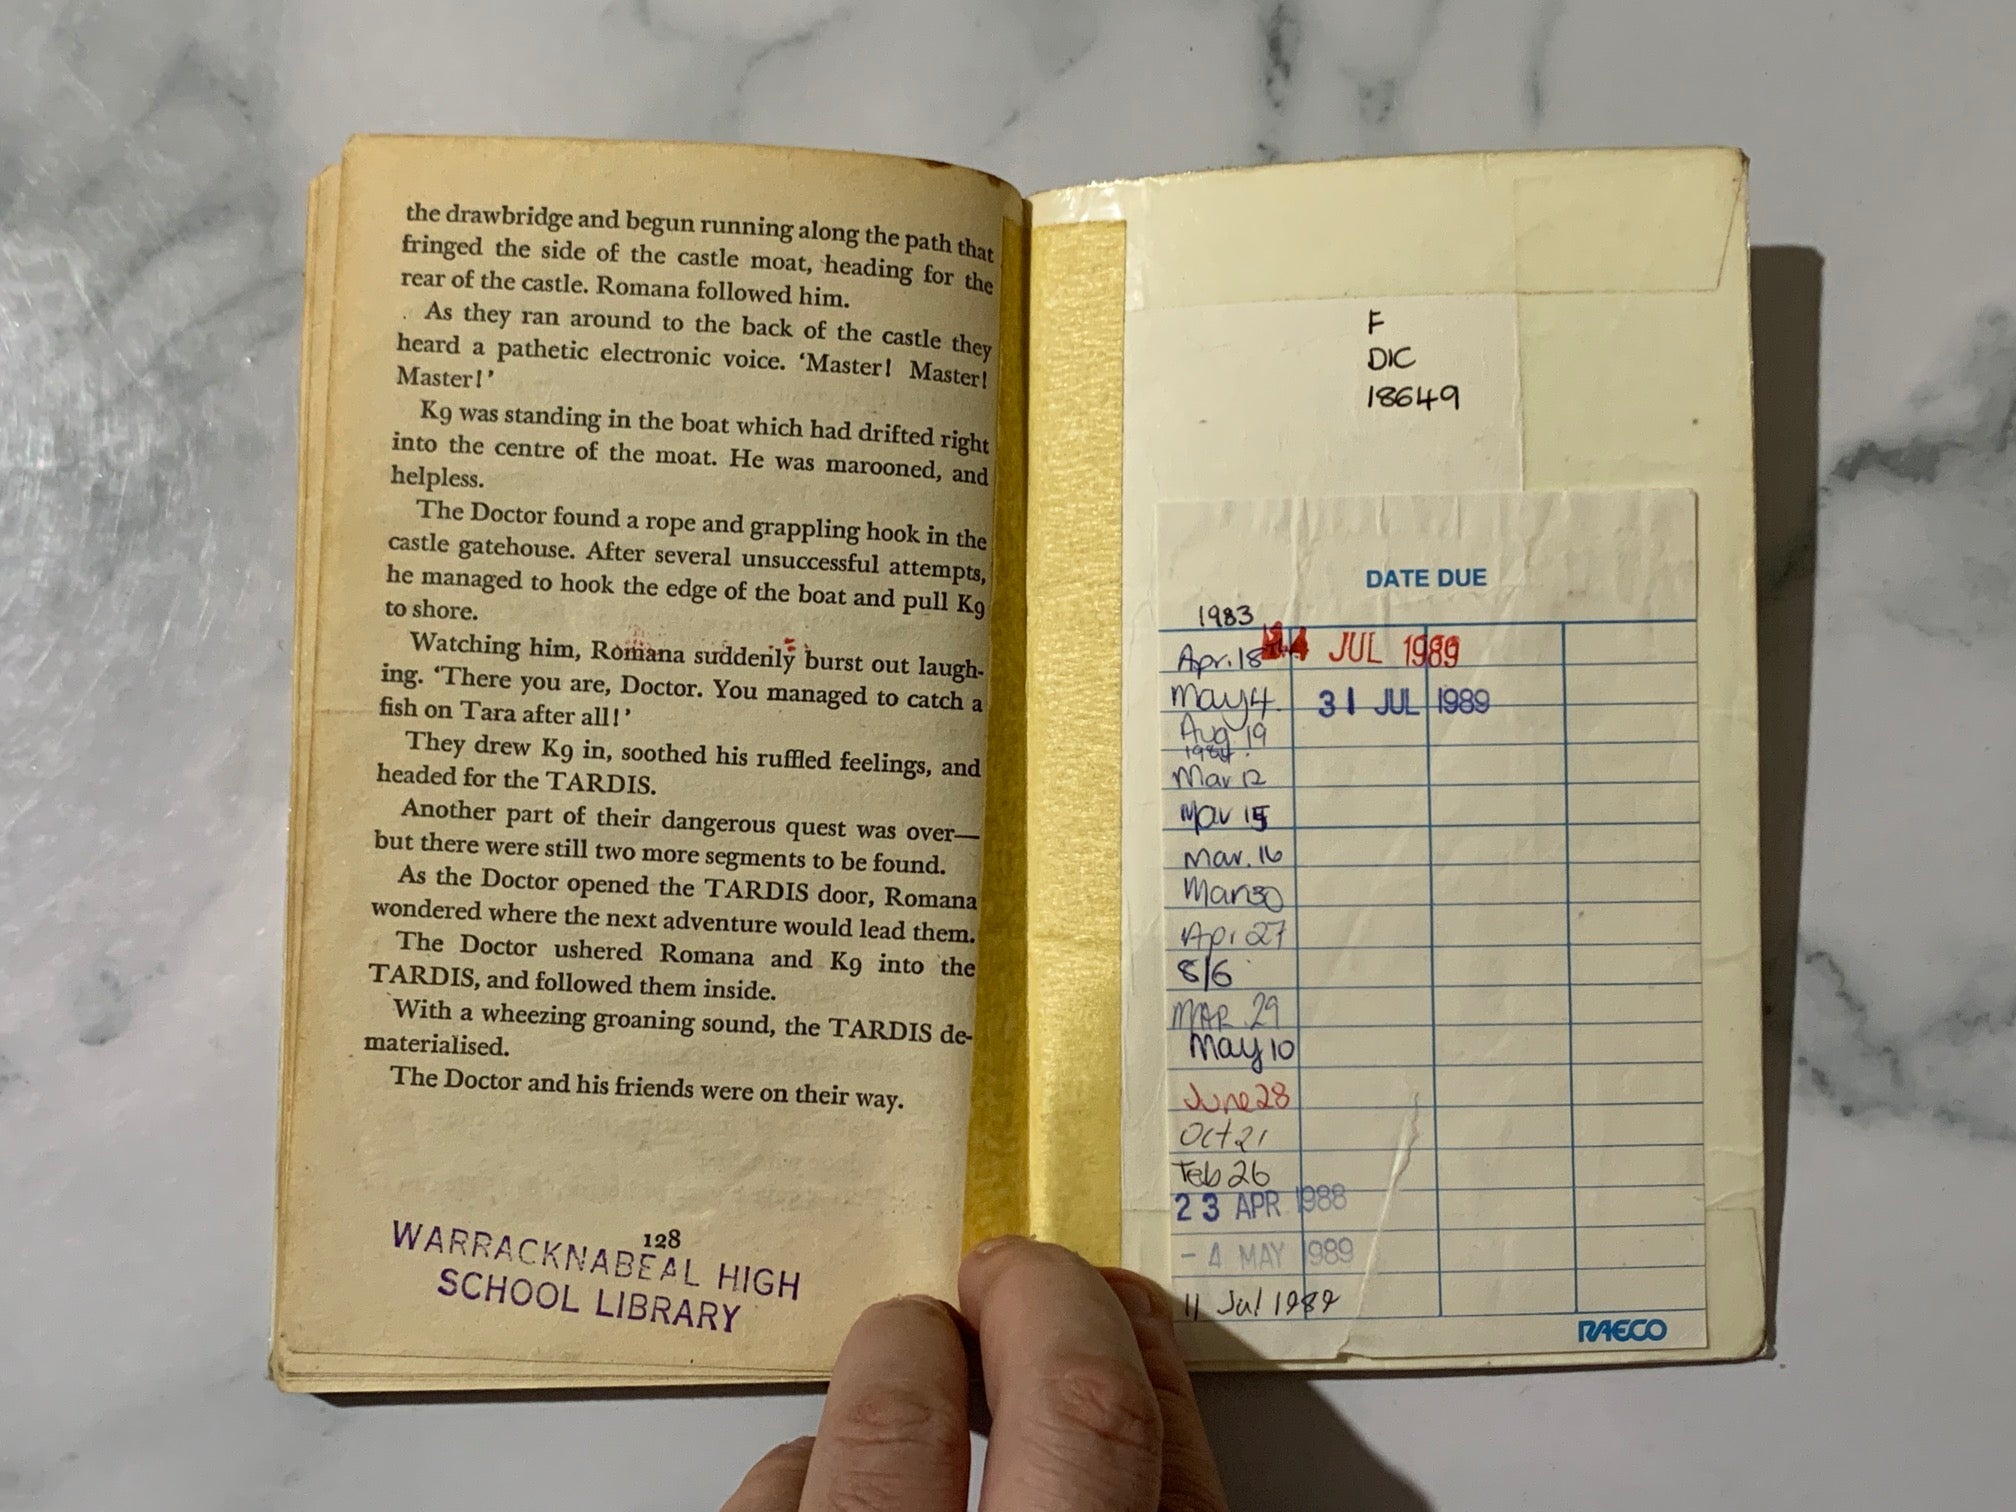 the drawbridge and begun running along the path that
fringed the side of the castle moat, heading for the
rear of the castle. Romana followed him.
As they ran around to the back of the castle they
heard a pathetic electronic voice. ‘Master! Master!
Master!’
K9 was standing in the boat which had drifted right
into the centre of the moat. He was marooned, and
helpless.
The Doctor found a rope and grappling hook in the
castle gatehouse. After several unsuccessful attempts,
he managed to hook the edge of the boat and pull K9
to shore.
Watching him, Romana suddenly burst out laugh-
ing. ‘There you are, Doctor. You managed to catch a
fish on Tara after all!’
They drew K9 in, soothed his ruffled feelings, and
headed for the TARDIS.
Another part of their dangerous quest was over—
but there were still two more segments to be found.
As the Doctor opened the TARDIS door, Romana
wondered where the next adventure would lead them.
The Doctor ushered Romana and K9 into the
TARDIS, and followed them inside.
With a wheezing groaning sound, the TARDIS de-
materialised.
The Doctor and his friends were on their way.
128
WARRACKNABEAL HIGH
SCHOOL LIBRARY
F
DIC
18649
DATE DUE
1983
Apr. 18
May 4
Aug 19
1984
Mar 12
Mar 15
Mar. 16
Mar 30
Apr 27
8/6
MAR 29
May 10
June 28
Oct 21
Feb 26
23 APR 1988
- 4 MAY 1989
11 Jul 1989
JUL 1989
31 JUL 1989
RAECO